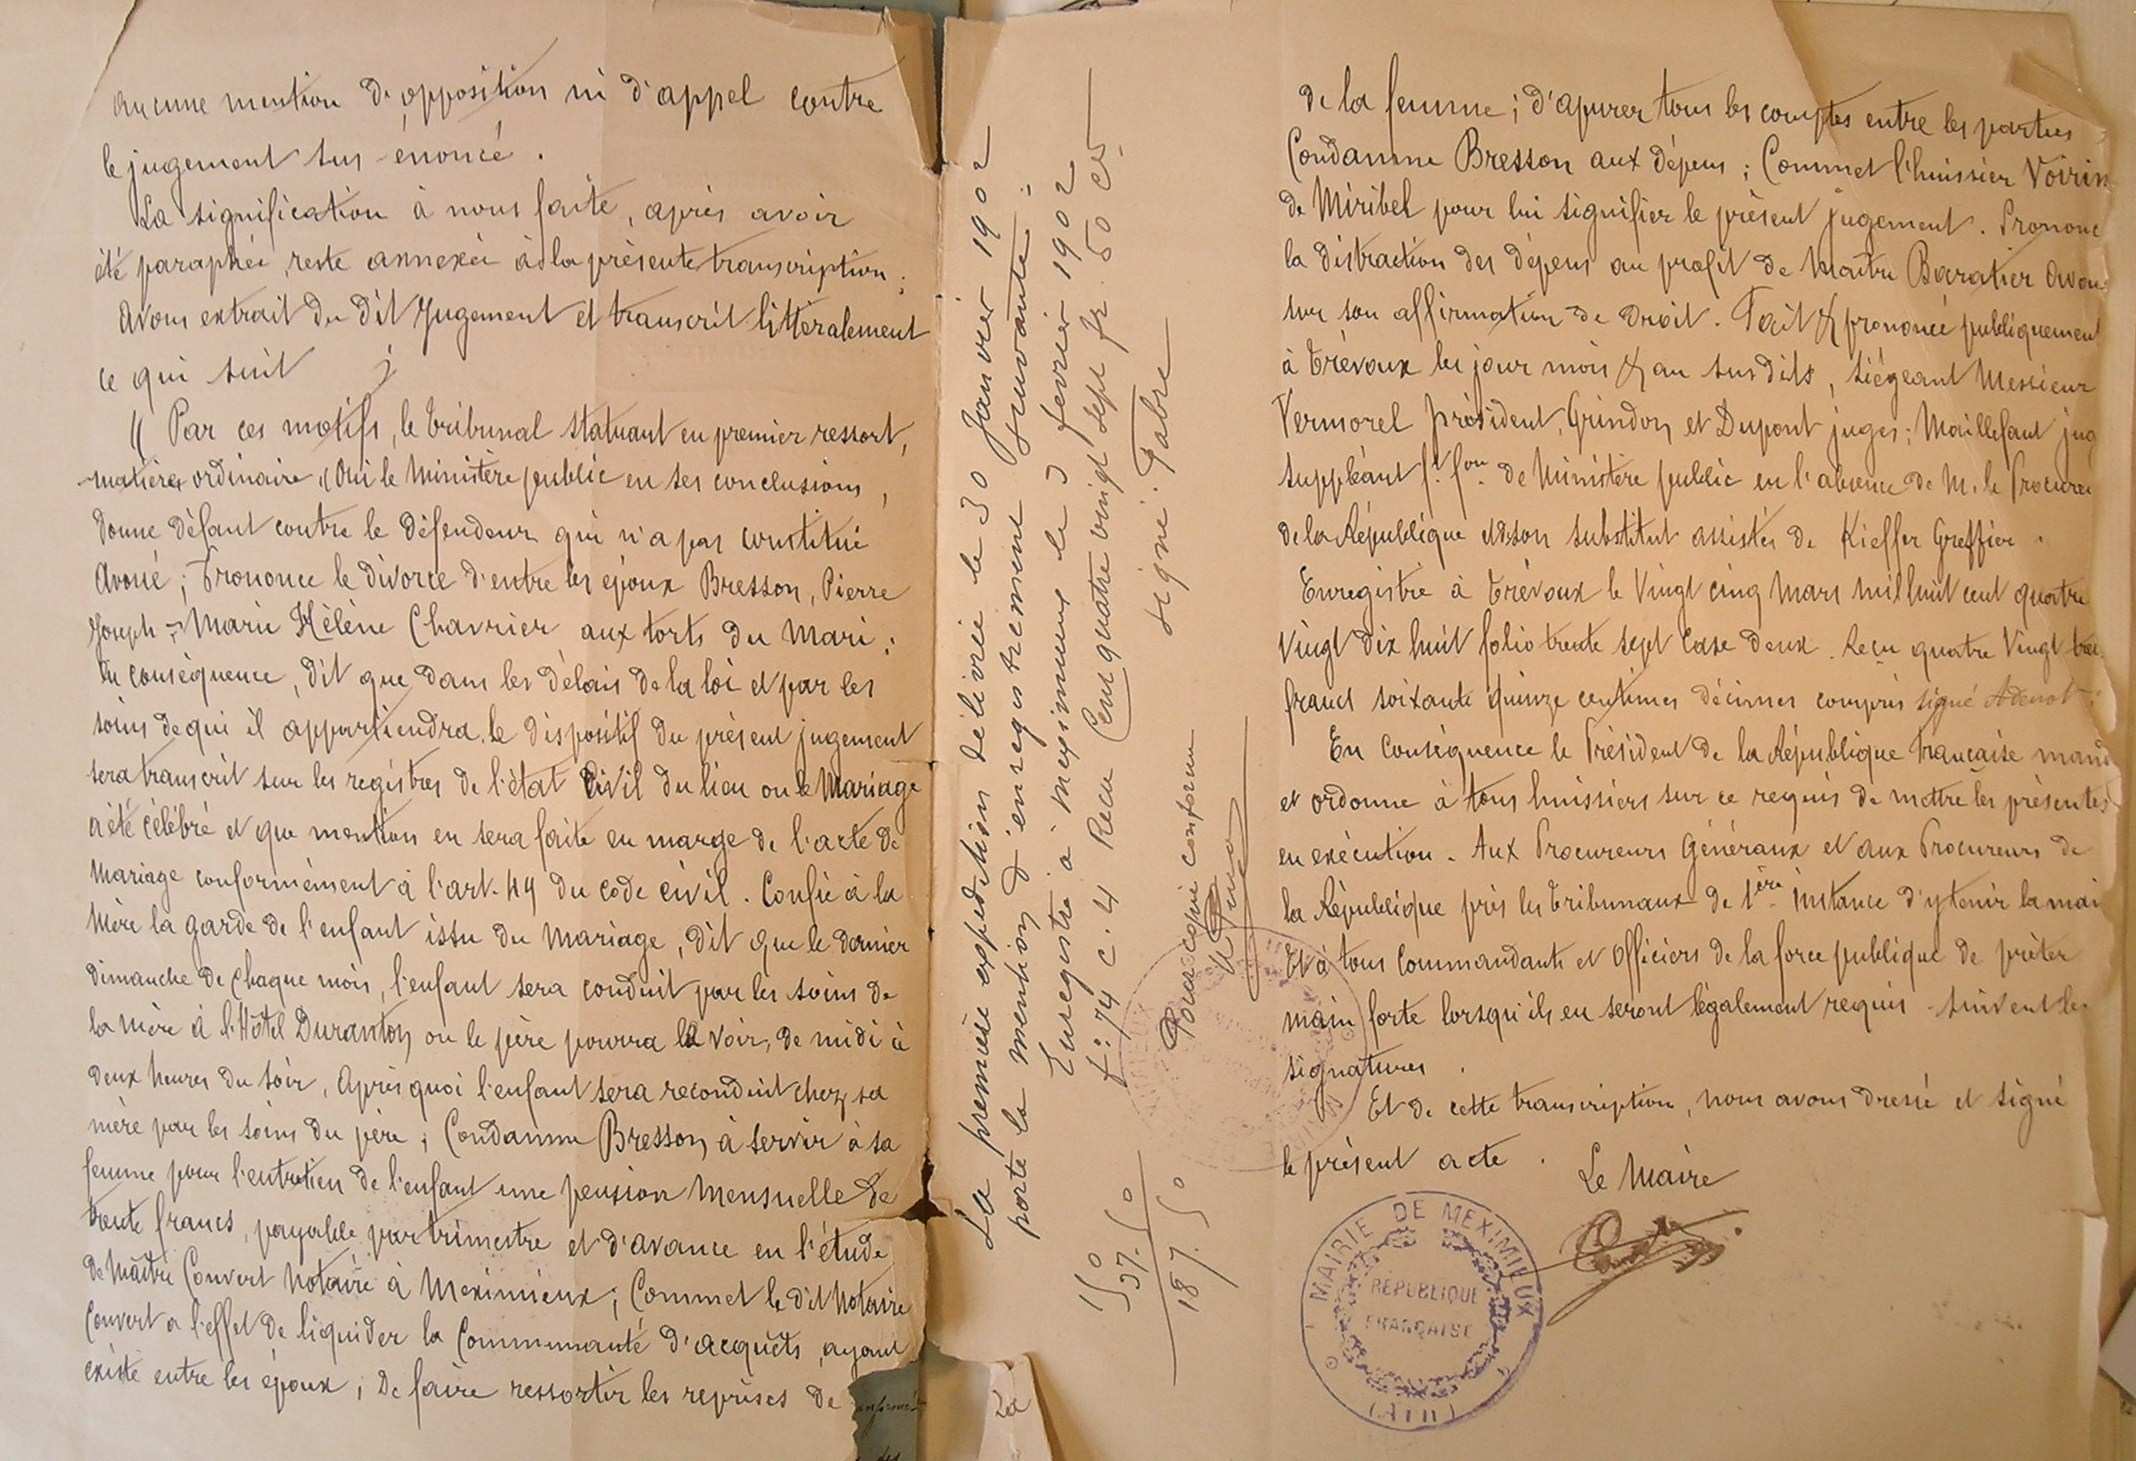 aucune mention d'opposition ni d'appel contre
le jugement sus-énoncé.
La signification à nous faite, après avoir
été paraphée, reste annexée à la présente transcription;
Avons extrait du dit Jugement et transcrit littéralement
ce qui suit
"Par ces motifs, le tribunal statuant en premier ressort,
matière ordinaire, Oui le Ministère public en ses conclusions,
donne défaut contre le défendeur qui n'a pas constitué
Avoué; Prononce le divorce d'entre les époux Bresson, Pierre
Joseph - Marie Hélène Chavrier aux torts du Mari;
En conséquence, dit que dans les délais de la loi et par les
soins de qui il appartiendra, le dispositif du présent jugement
sera transcrit sur les registres de l'état Civil du lieu ou le Mariage
a été célébré et que mention en sera faite en marge de l'acte de
Mariage conformément à l'art. 49 du code civil. Confie à la
Mère la garde de l'enfant issu du Mariage, dit que le dernier
dimanche de chaque mois, l'enfant sera conduit par les soins de
la mère à l'Hôtel Duranton ou le père pourra le voir, de midi à
deux heures du soir, Après quoi l'enfant sera reconduit chez sa
mère par les soins du père; Condamne Bresson à servir à sa
femme pour l'entretien de l'enfant une pension Mensuelle de
trente francs, payable par trimestre et d'avance en l'étude
de Maître Convert Notaire à Meximieux; Commet le dit Notaire
Convert a l'effet de liquider la Communauté d'acquêts, ayant
existé entre les époux; De faire ressortir les reprises de
La première expédition délivrée le 30 Janvier 1902
porte la mention d'enregistrement suivante:
Enregistré à Meximieux le 3 fevrier 1902
f° 74 c. 4 Reçu Cent quatre vingt sept fr. 50 cts
signé: Fabre
Pour copie conforme
150
37.50
187.50
de la femme; d'apurer tous les comptes entre les parties
Condamne Bresson aux dépens; Commet l'huissier Voirin
de Miribel pour lui signifier le présent jugement. Prononc
la distraction des dépens au profit de Maître Baratier Avou
sur son affirmation de droit. Fait & prononcé publiquement
à Trévoux les jour mois & an susdits, siégeant Messieur
Vermorel Président, Grindon et Dupont juges; Maillefaut jug
suppléant f. fon de Ministère public en l'absence de M. le Procureu
de la République et son substitut assistés de Kieffer Greffier.
Enregistré à Trévoux le Vingt cinq Mars mil huit cent quatre
Vingt dix huit folio trente sept Case deux. Reçu quatre Vingt
francs soixante quinze centimes décimes compris signé Adenot;
En Conséquence le Président de la République Française mand
et ordonne à tous huissiers sur ce requis de mettre les présentes
en exécution. Aux Procureurs Généraux et aux Procureurs de
la République près les tribunaux de 1ère instance d'y tenir la mai
Et à tous Commandants et Officiers de la force publique de prêter
main forte lorsqu'ils en seront légalement requis - suivent les
signatures.
Et de cette transcription, nous avons dressé et signé
le présent acte.
Le Maire
MAIRIE DE MEXIMIEUX
RÉPUBLIQUE
FRANÇAISE
(AIN)